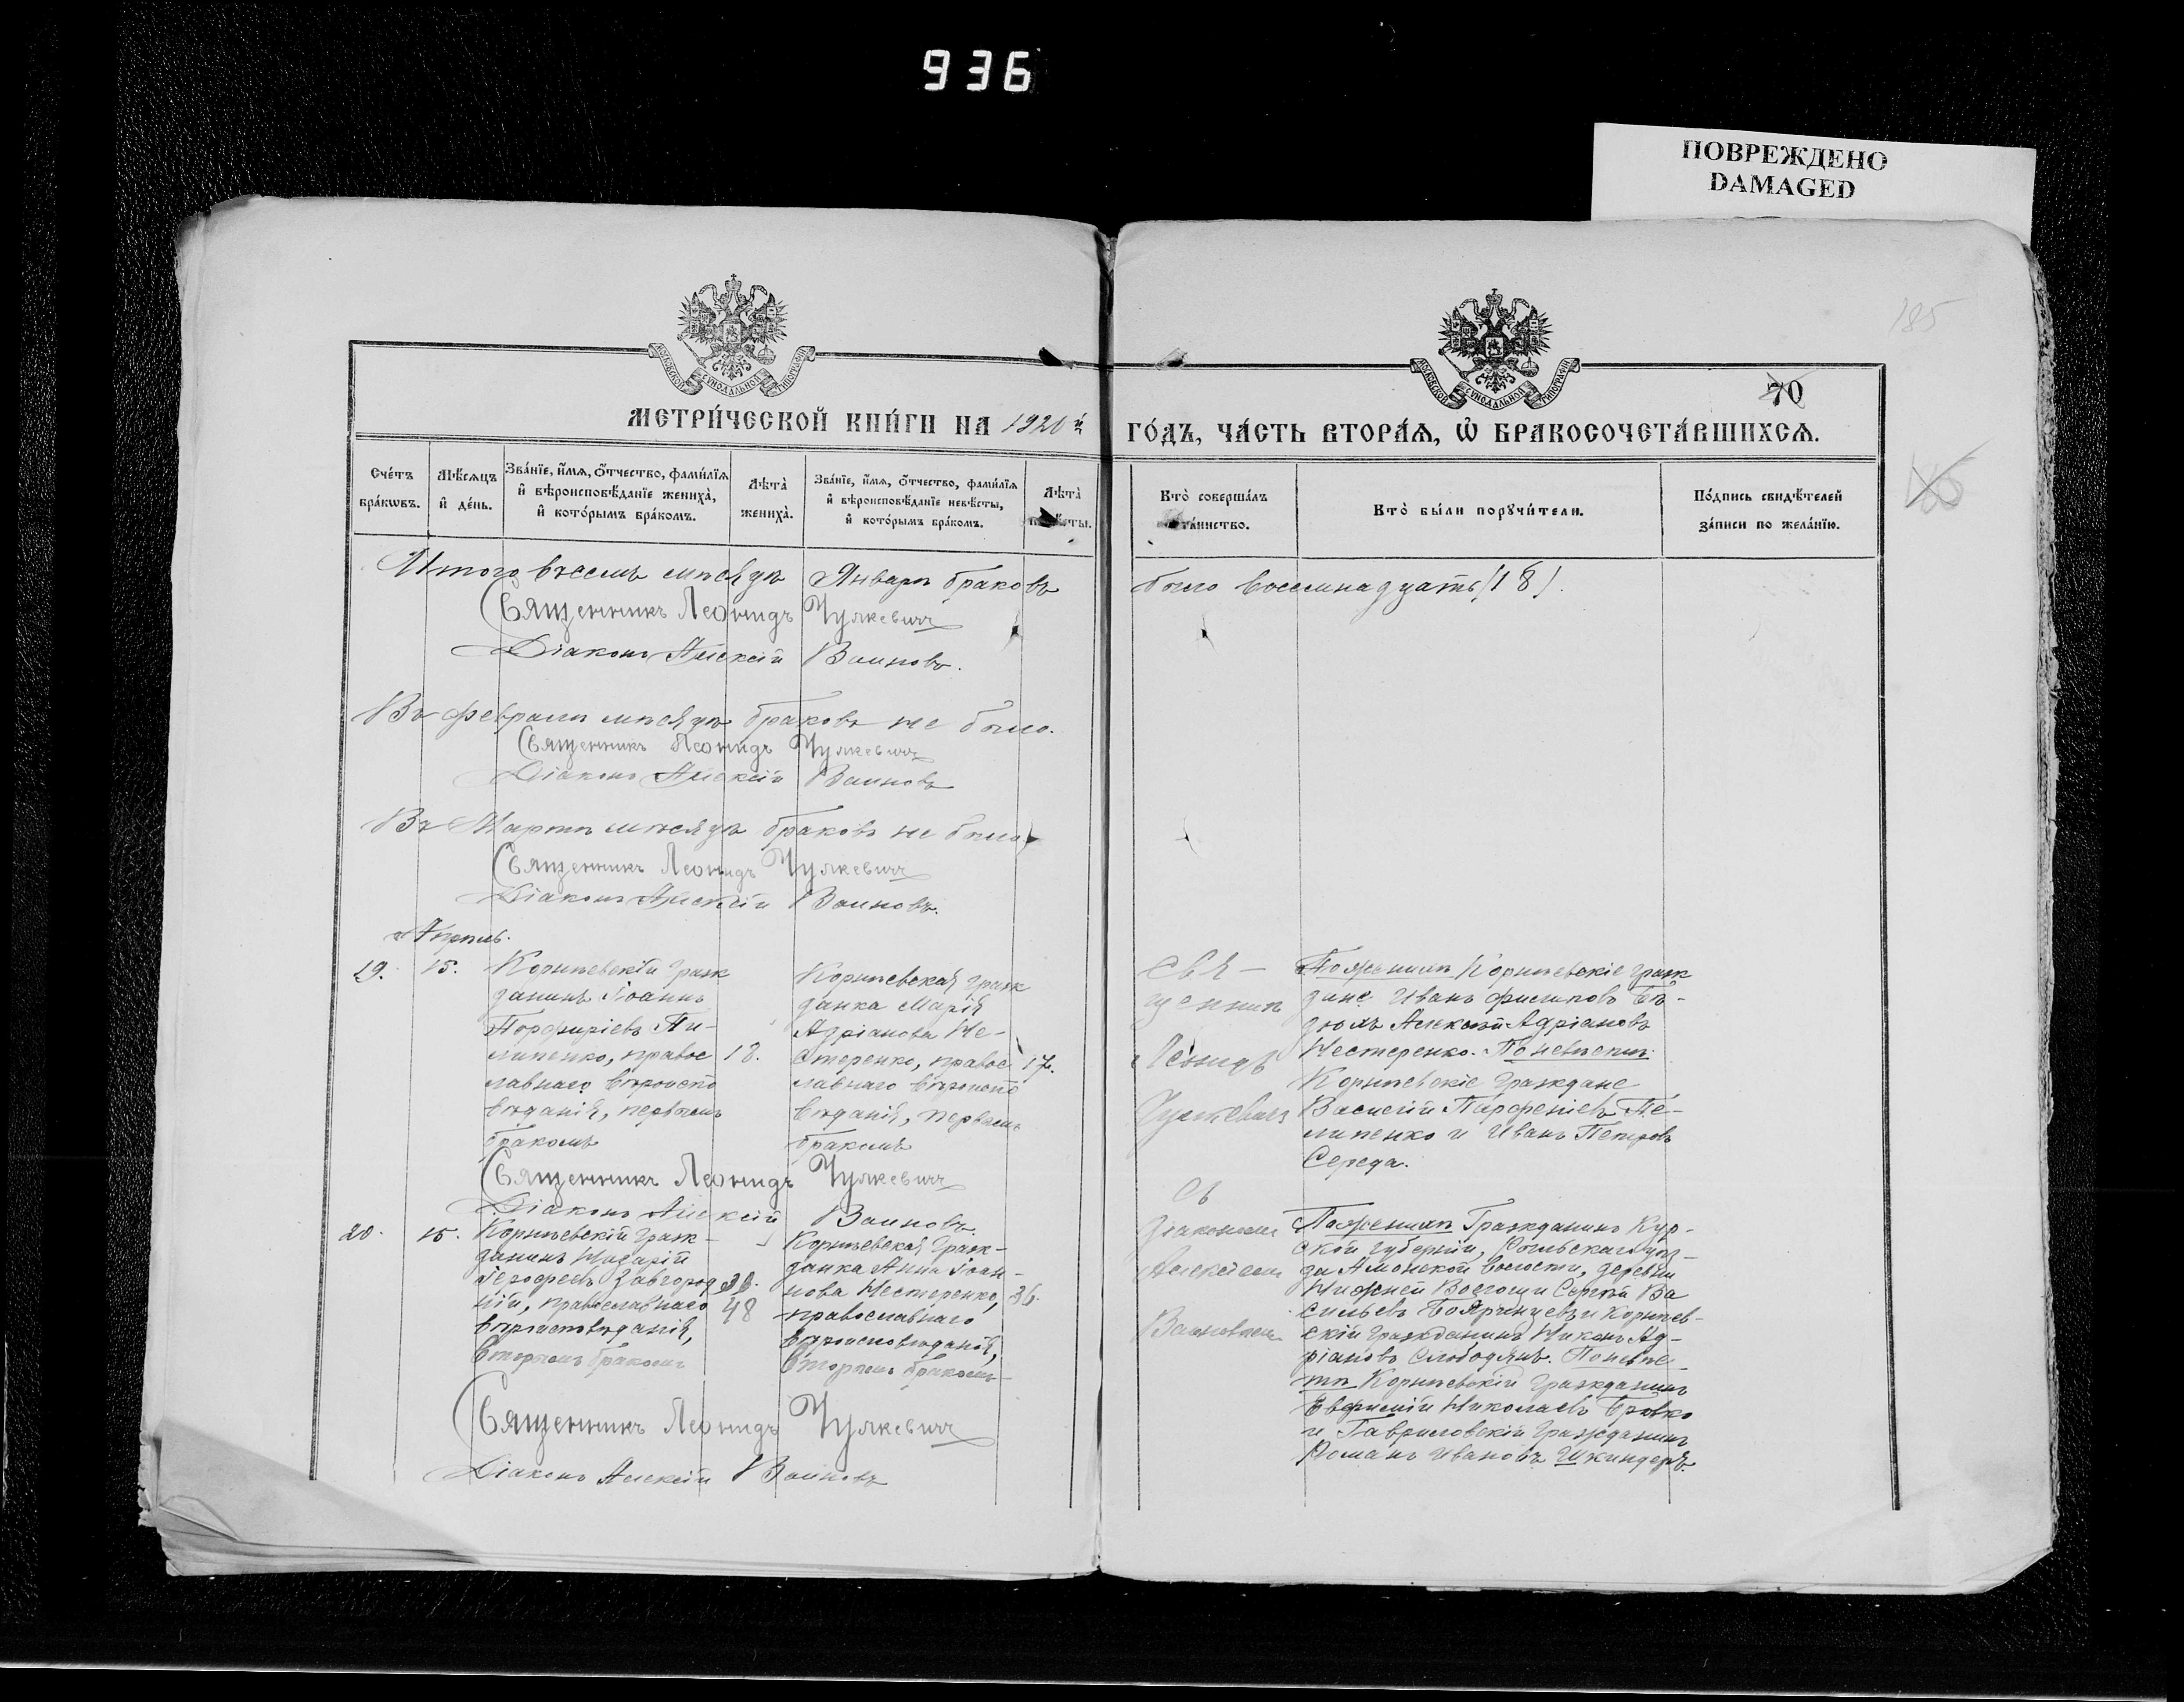 936
ПОВРЕЖДЕНО
DAMAGED
185
70
МОСКОВСКОЙ СѴНОДАЛЬНОЙ ТИПОГРАФІИ
МОСКОВСКОЙ СѴНОДАЛЬНОЙ ТИПОГРАФІИ
МЕТРИ́ЧЕСКОЙ КНИ́ГИ НА 1920й ГО́ДЪ, ЧА́СТЬ ВТОРА́Я, Ѡ БРАКОСОЧЕТА́ВШИХСЯ.
Сче́тъ
бра́кѡвъ.
Мѣ́сяцъ
и҆ де́нь.
Зва́нїе, и҆́мя, ѻ҆́тчество, фами́лїя
и҆ вѣроисповѣ́данїе жениха̀,
и҆ кото́рымъ бра́комъ.
Лѣта̀
жениха̀.
Зва́нїе, и҆́мя, ѻ҆́тчество, фами́лїя
и҆ вѣроисповѣ́данїе невѣ́сты,
и҆ кото́рымъ бра́комъ.
Лѣта̀
невѣ́сты.
Кто̀ соверша́лъ
та́инство.
Кто̀ бы́ли порꙋчи́тели.
По́дпись свидѣ́телей
за́писи по жела́нїю.
Итого въ семъ мѣсяцѣ Январѣ браковъ было восемнадцать (18).
Священникъ Леонидъ Чулкевичъ
Діаконъ Алексій Воиновъ.
Въ Февралѣ мѣсяцѣ браковъ не было.
Священникъ Леонидъ Чулкевичъ
Діаконъ Алексій Воиновъ
Въ Мартѣ мѣсяцѣ браковъ не было
Священникъ Леонидъ Чулкевичъ
Діаконъ Алексій Воиновъ.
Апрѣль.
19.
15.
Корнѣевскій граж
данинъ Іоаннъ
Порфиріевъ Пи-
липенко, правос
лавнаго вѣроиспо
вѣданія, первымъ
бракомъ
18.
Корнѣевская граж
данка Марія
Адріанова Не-
стеренко, правос
лавнаго вѣроиспо
вѣданія, первымъ
бракомъ
17.
Свя-
щенникъ
Леонидъ
Чулкевичъ
Съ
діакономъ
Алексіемъ
Воиновымъ
По женихѣ Корнѣевскіе граж
дане Иванъ Филиповъ
Алексій Адріановъ
Нестеренко. По невѣстѣ:
Корнѣевскіе граждане
Василій Парфеніевъ Пи-
липенко и Иванъ Петровъ
Середа.
Священникъ Леонидъ Чулкевичъ
Діаконъ Алексій Воиновъ.
20.
15.
Корнѣевскій граж-
данинъ
Іерофеевъ Завгород
ній, православнаго
вѣроисповѣданія,
вторымъ бракомъ
48
Корнѣевская граж-
данка Анна Іоан-
нова Нестеренко,
православнаго
вѣроисповѣданія,
вторымъ бракомъ
36.
По женихѣ Гражданинъ Кур-
ской губерніи, Рыльскаго уѣз-
да Амонской волости, деревни
Нижней Сергѣй Ва
сильевъ Бояринцевъ и Корнѣев-
скій гражданинъ Никонъ Ад-
ріановъ Слободянъ. По невѣс-
тѣ Корнѣевскій гражданинъ
Евфимій Николаевъ Бровко
и Гавриловскій гражданинъ
Романъ Ивановъ Шкиндеръ.
Священникъ Леонидъ Чулкевичъ
Діаконъ Алексій Воиновъ